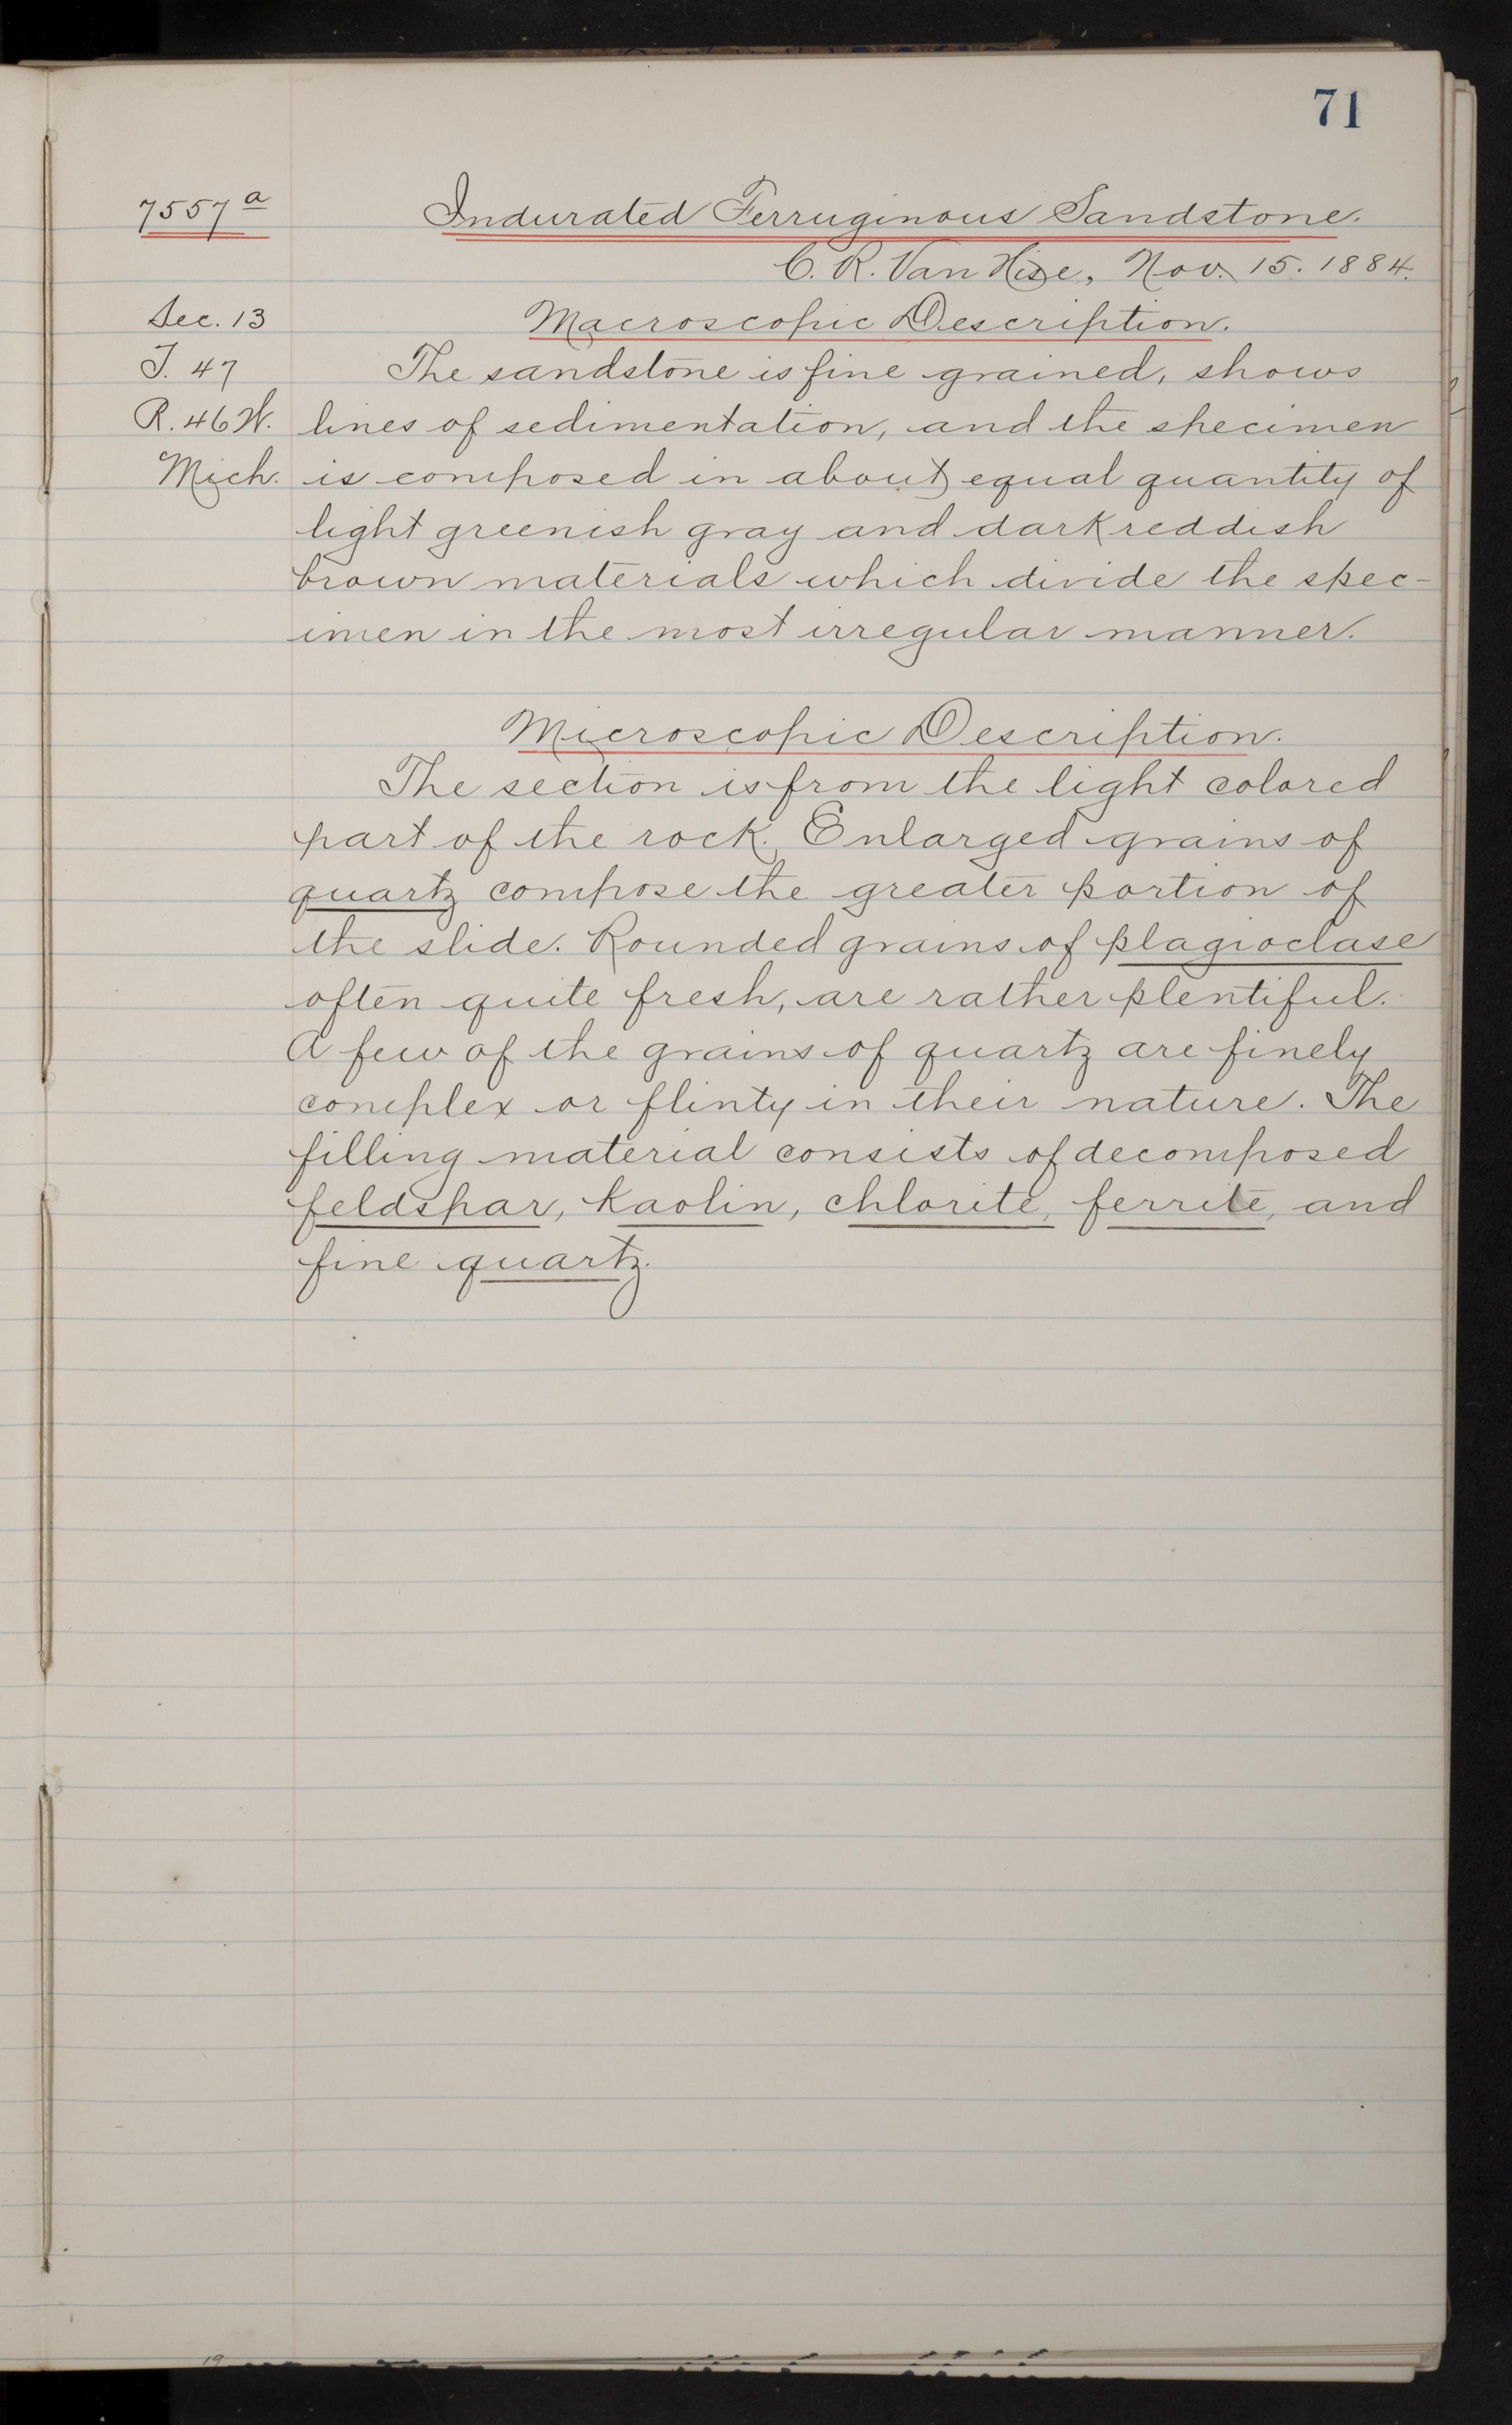 71
7557a Indurated Ferruginous Sandstone.
C. R. Van Hise, Nov. 15. 1884.
Sec. 13 Macroscopic Description.
T. 47 The sandstone is fine grained, shows
R. 46 W. lines of sedimentation, and the specimen
Mich. is composed in about equal quantity of
light greenish gray and dark reddish
brown materials which divide the spec-
imen in the most irregular manner.
Microscopic Description.
The section is from the light colored
part of the rock. Enlarged grains of
quartz compose the greater portion of
the slide. Rounded grains of plagioclase
often quite fresh, are rather plentiful.
A few of the grains of quartz are finely
complex or flinty in their nature. The
filling material consists of decomposed
feldspar, kaolin, chlorite, ferrite, and
fine quartz.